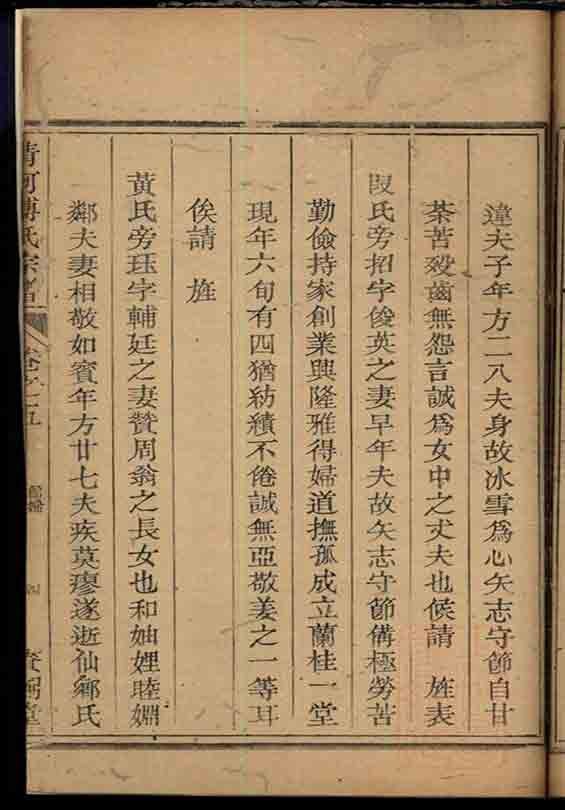 違夫子年方二八夫身故冰雪爲心矢志守節自甘
荼苦歿齒無怨言誠爲女中之丈夫也候請　旌表
段氏旁招字俊英之妻早年夫故矢志守節備極勞苦
勤儉持家創業興隆雅得婦道撫孤成立蘭桂一堂
現年六旬有四猶紡績不倦誠無亞敬姜之一等耳
俟請　旌
黃氏旁珏字輔廷之妻贊周翁之長女也和妯娌睦婣
鄰夫妻相敬如賓年方廿七夫疾莫瘳遂逝仙鄉氏
清河傅氏宗譜
卷之五
節婦
四